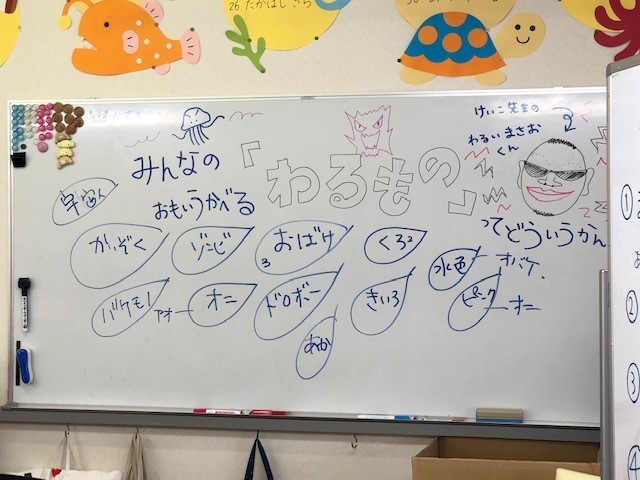 26.たかはし さら
けいこ先生の
わるいまさお
くん
みんなの
おもいうかべる
『わるもの』
ってどういうかん
宇宙人
かいぞく
ゾンビ
3 おばけ
くろ2
水色 オバケ
バケモノ
アオ オニ
ドロボー
きいろ
ピンク オニ
あか
①
②
③
④